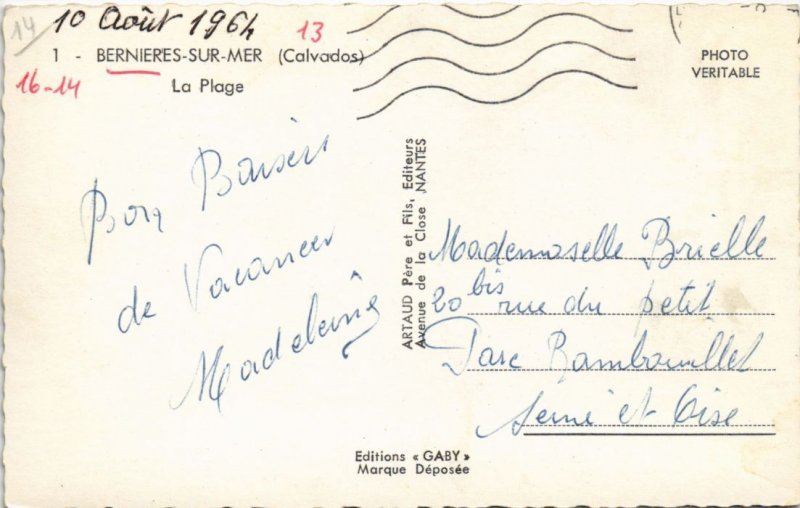 14
10 Août 1964
13
1 - BERNIERES-SUR-MER (Calvados)
16-14
La Plage
PHOTO
VERITABLE
Bons Baisers
de Vacances
Madeleine
ARTAUD Père et Fils, Editeurs
Avenue de la Close NANTES
Mademoselle Brielle
20 bis rue du petit
Parc Rambouillet
Seine et Oise
Editions « GABY »
Marque Déposée